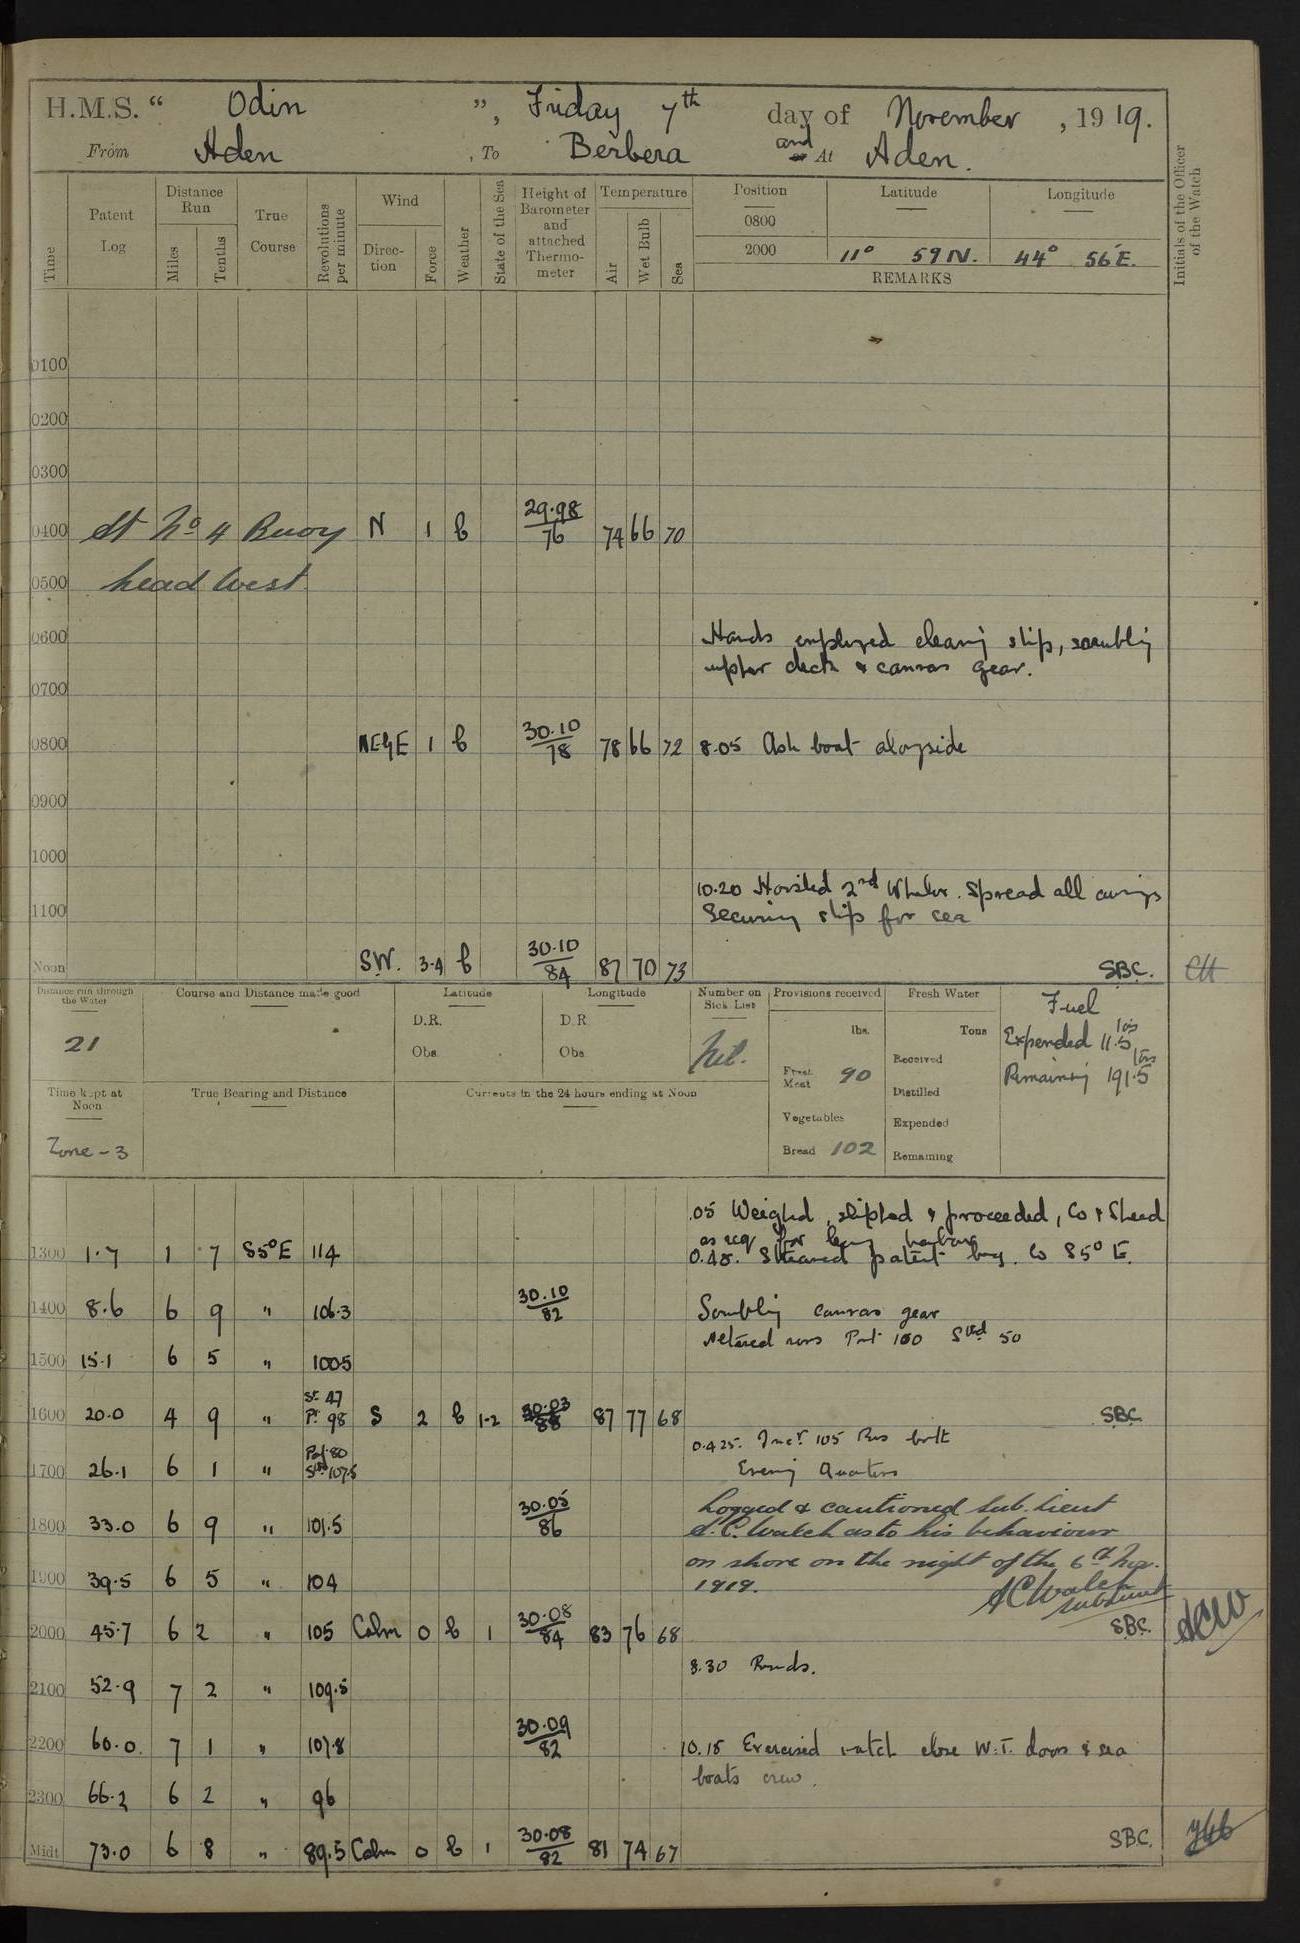 H.M.S. “ Odin ”, Friday 7th day of November, 1919.
From Aden, To Berbera and or At Aden.
Time
Patent Log
Distance Run
Miles
Tenths
True Course
Revolutions per minute
Wind
Direction
Force
Weather
State of the Sea
Height of Barometer and attached Thermometer
Temperature
Air
Wet Bulb
Sea
Position Latitude Longitude
0800
2000 11° 59 N. 44° 56 E.
REMARKS
Initials of the Officer of the Watch
0100
0200
0300
0400 At No 4 Buoy N 1 b 29.98/76 74 66 70
0500 head West
0600 Hands employed cleaning ship, scrubbing
upper deck & canvas gear.
0700
0800 NE by E 1 b 30.10/78 78 66 72 8.05 Ash boat alongside
0900
1000
10.20 Hoisted 2nd Whaler. Spread all awnings
1100 Securing ship for sea
Noon S.W. 3-4 b 30.10/84 87 70 73 SBC.
Distance run through the Water
21
Course and Distance made good
Latitude
D.R.
Obs.
Longitude
D R
Obs.
Number on Sick List
Nil.
Provisions received
lbs.
Fresh Meat 90
Vegetables
Bread 102
Fresh Water
Tons
Received
Distilled
Expended
Remaining
Fuel
Expended 11.5 tons
Remaining 191.5 tons
Time kept at Noon
Zone - 3
True Bearing and Distance
Currents in the 24 hours ending at Noon
.05 Weighed, slipped & proceeded, Co & Speed
as req for leaving harbour
1300 1.7 1 7 S5°E 114 0.48. Streamed patent log. Co S5° E.
1400 8.6 6 9 " 106.3 30.10/82 Scrubbing canvas gear
Altered revs Port 100 Stbd 50
1500 15.1 6 5 " 100.5
1600 20.0 4 9 " St 47 Pt 98 S 2 b 1-2 30.03/88 87 77 68 SBC
0.425. Incr 105 Revs both
1700 26.1 6 1 " Port 80 Stbd 107.5 Evening Quarters
Logged & cautioned Sub. Lieut
1800 33.0 6 9 " 101.5 30.05/86 A.C. Walch as to his behaviour
on shore on the night of the 6th Nov.
1900 39.5 6 5 " 104 1919.
A C Walch
Sub Lieut
2000 45.7 6 2 " 105 Calm 0 b 1 30.08/84 83 76 68 SBC. ACW
8.30 Rounds.
2100 52.9 7 2 " 109.5
2200 60.0 7 1 " 107.8 30.09/82 10.15 Exercised watch close W.T. doors & sea
boats crew.
2300 66.2 6 2 " 96
Midt 73.0 6 8 " 89.5 Calm 0 b 1 30.08/82 81 74 67 SBC.